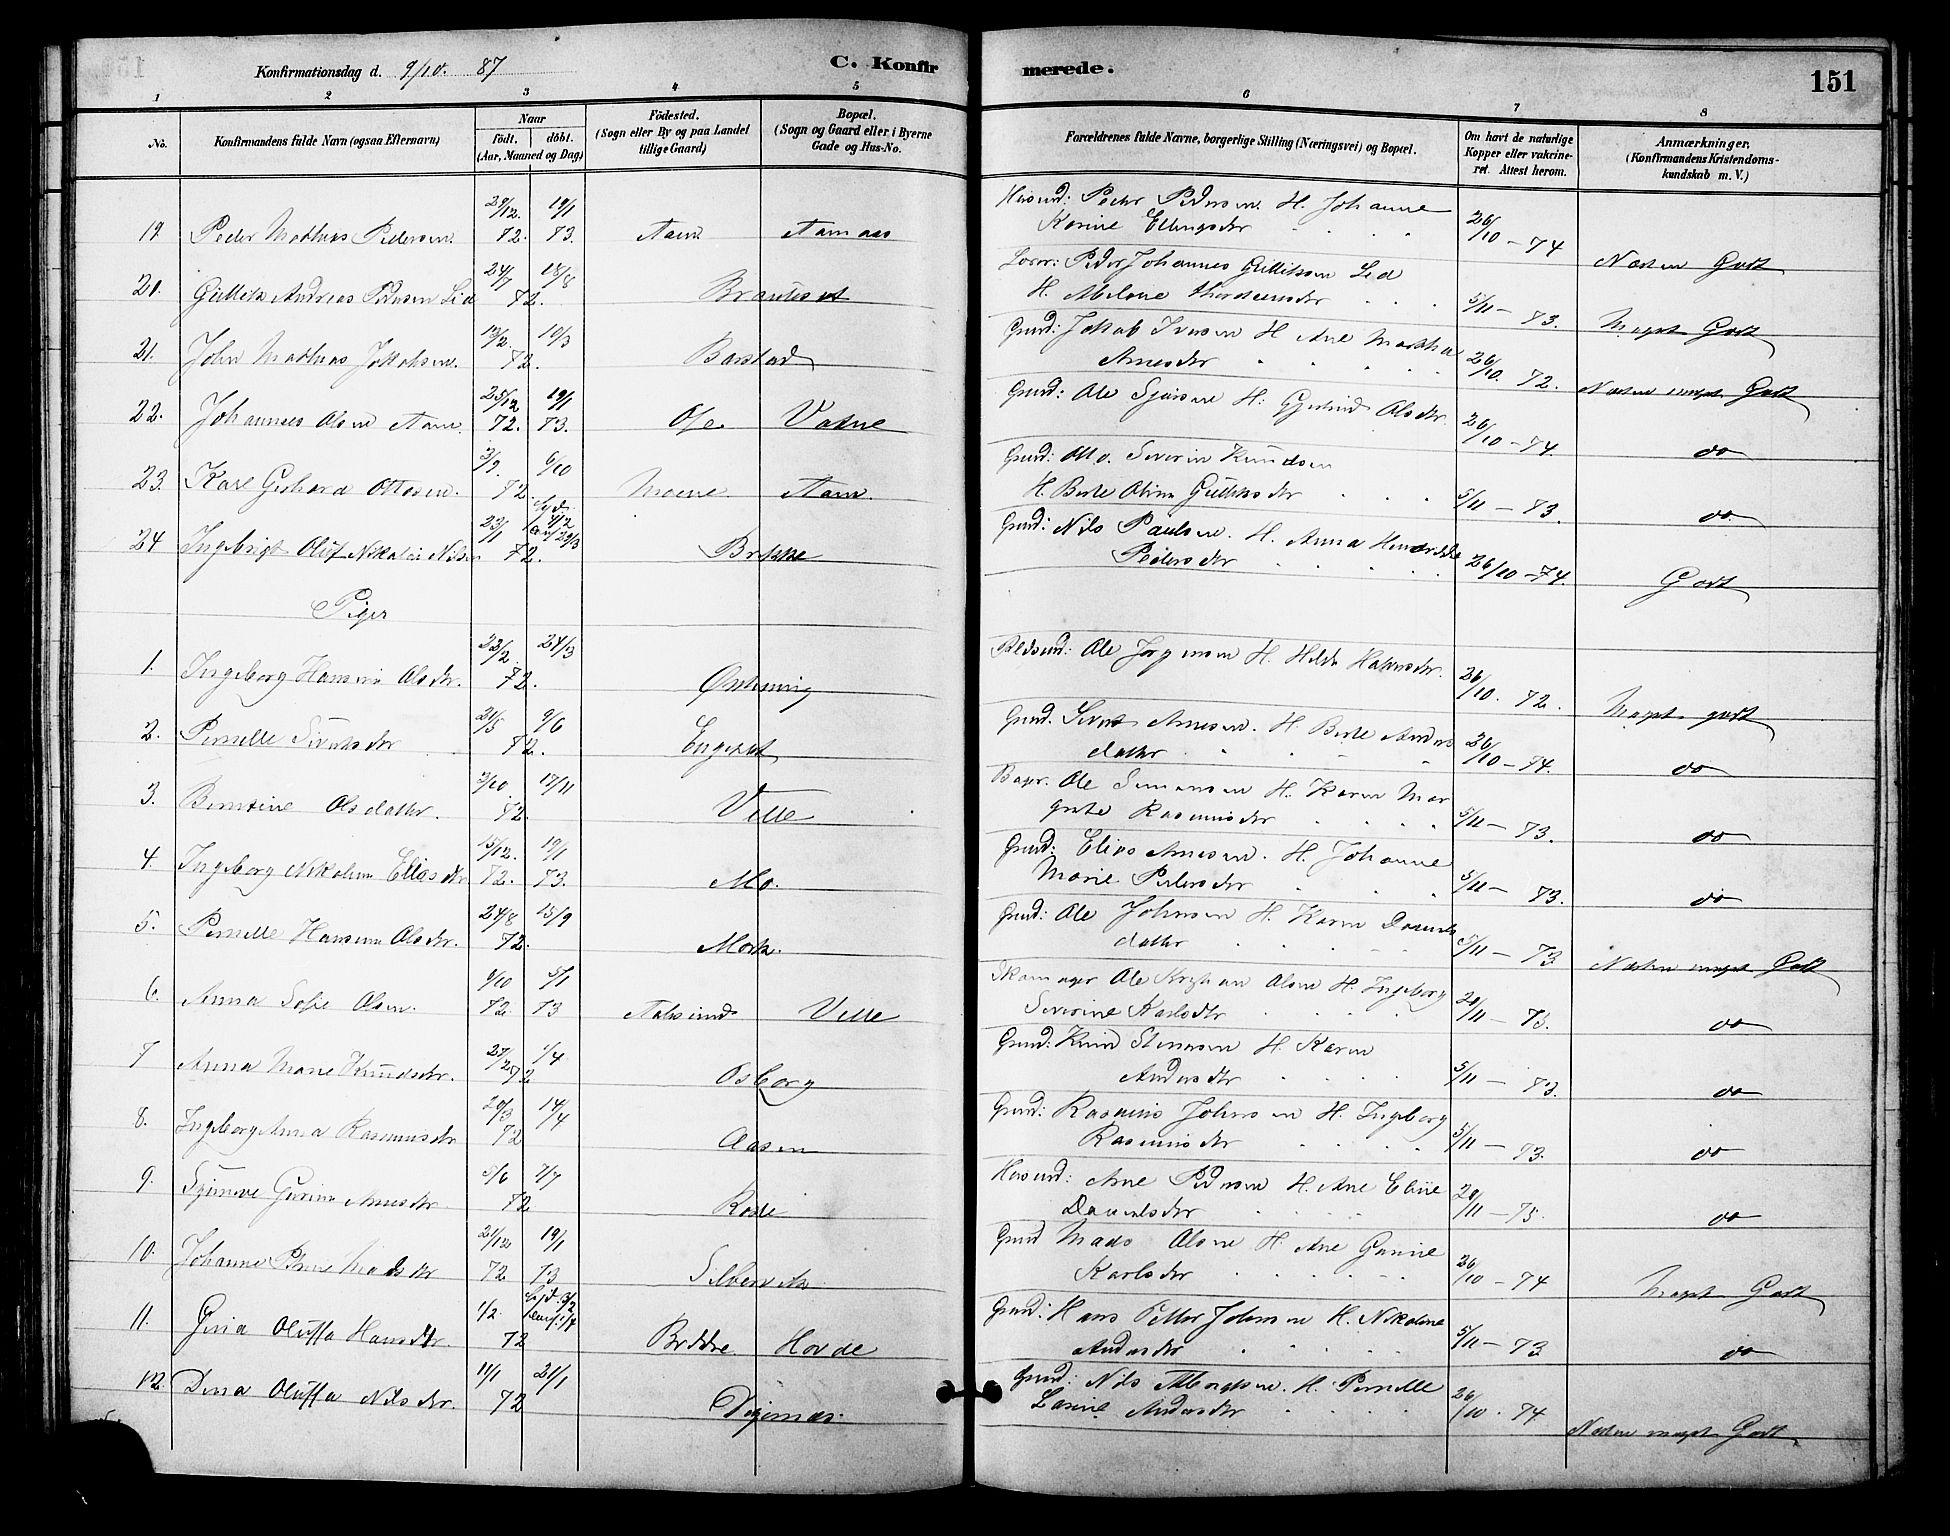 Konfirmationsdag d. 9/10. 87
C. Konfirmerede.
151
1 2 3 4 5 6 7 8
No.
Konfirmandens fulde Navn (ogsaa Efternavn)
Naar
födt. döbt.
(Aar, Maaned og Dag)
Födested.
(Sogn eller By og paa Landet
tillige Gaard)
Bopæl.
(Sogn og Gaard eller i Byerne
Gade og Hus-No.
Forældrenes fulde Navne, borgerlige Stilling (Næringsvei) og Bopæl.
Om havt de naturlige
Kopper eller vakcine-
ret. Attest herom.
Anmærkninger.
(Konfirmandens Kristendoms-
kundskab m. V.)
19. Peder Mathias Pedersen. 29/12. 72. 19/1 73. Aam Aamaas Husmd: Peder Pedersen H. Johanne
Karine Ellingsdtr 26/10 - 74 Næsten Godt
20. Gullik Andreas Pedersen Lid 24/7 18/8 72. Brauteset Losør: Peder Johannes Gulliksen Lid
H. 5/11 - 73. Meget Godt
21. John Mathias Jakobsen. 13/2. 10/3 72. Barstad Grmd: Jakob Iversen H Ane Martha
Arnesdtr 26/10. 72. Næsten meget Godt
22. Johannes Olsen Aam. 25/12 72. 19/1 73. Ose Vatne Grmd: Ole Sjursen H: Gjertrud Olsdtr. 26/10 - 74. do
23. Karl Gerhard Ottosen. 3/9. 6/10 72. Moene Aam. Grmd: Severin Knudsen
H. Berte Olivia Gulliksdtr 5/11 - 73. do.
24 Ingebrigt Oluf Nikolai Nilsen 23/1 72. Grmd: Nils Paulsen. H. Anna
Pedersdtr 26/10 - 74. Godt
Piger
1. Ingeborg Hansine Olsdtr. 23/2. 24/3 72. Ole Jørgensen H. Hilde 26/10. 72. Meget godt
2. Pernille Sivertsdtr 21/5 9/6 72. Engeset Grmd. Sivert Arnesen. H. Berte Anders
datter 26/10 - 74. do
3. Berntine Olsdatter. 3/10. 17/11 72. Velle Ole Simonsen H. Karen Mar
grete Rasmusdtr 5/11 - 73. do
4. Ingeborg Nikoline Eliasdtr 15/12. 72. 19/1 73. Mo. Grmd: Elias Arnesen. H. Johanne
Marie Pedersdtr 5/11 - 73. do
5. Pernille Hansine Olsdtr. 24/8 15/9 72. Mork. Grmd: Ole Johnsen H. Karen Daniels
datter 5/11 - 73 Næsten meget Godt
6. Anna Sofie Olsen. 9/10 72 5/1 73 Aalesund Velle Skomager Ole Kristian Olsen H. Ingeborg
Severine Karlsdtr 20/11 - 75. do
7 Anna Marie Knudsdtr. 27/2 1/4 72 Osborg Grmd: Knud Steensen H. Karen
Andersdtr 5/11 - 73. do
8. Ingeborg Anna Rasmusdtr 20/3 14/4 72 Aasen Grmd: Rasmus Johnsen H. Ingeborg
Rasmusdtr 5/11 - 73. do
9. Synnøve Gurine Arnesdtr 5/6 7/7 72 Husmd: Arne Pedersen H. Ane Eline
Danielsdtr 20/11 - 75. do
10. Johanne Madsdtr 21/12 72 19/1 73 Grmd Mads Olsen H. Ane Gurine
Karlsdtr 26/10 - 74 Meget Godt
11. Gina Oluffa Hansdtr. 1/2. 72 Hovde Grmd: Hans Petter Johnsen H. Nikoline
Andersdtr 5/11 - 73 do
12. Dina Oluffa Nilsdtr 11/1 21/1 72 Digernæs. Grmd: Nils H. Pernille
Andersdtr 26/10. 74 Næsten meget Godt